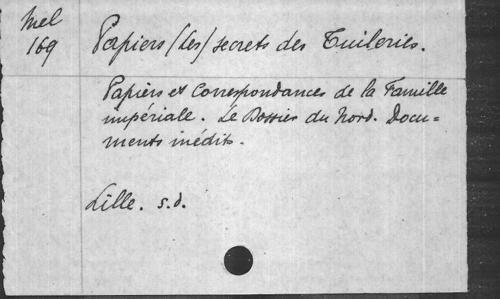 Mel
169
Papiers (Les) secrets des Tuileries.
Papiers et Correspondances de la Famille
impériale. Le Dossier du Nord. Docu-
ments inédits.
Lille. s.d.